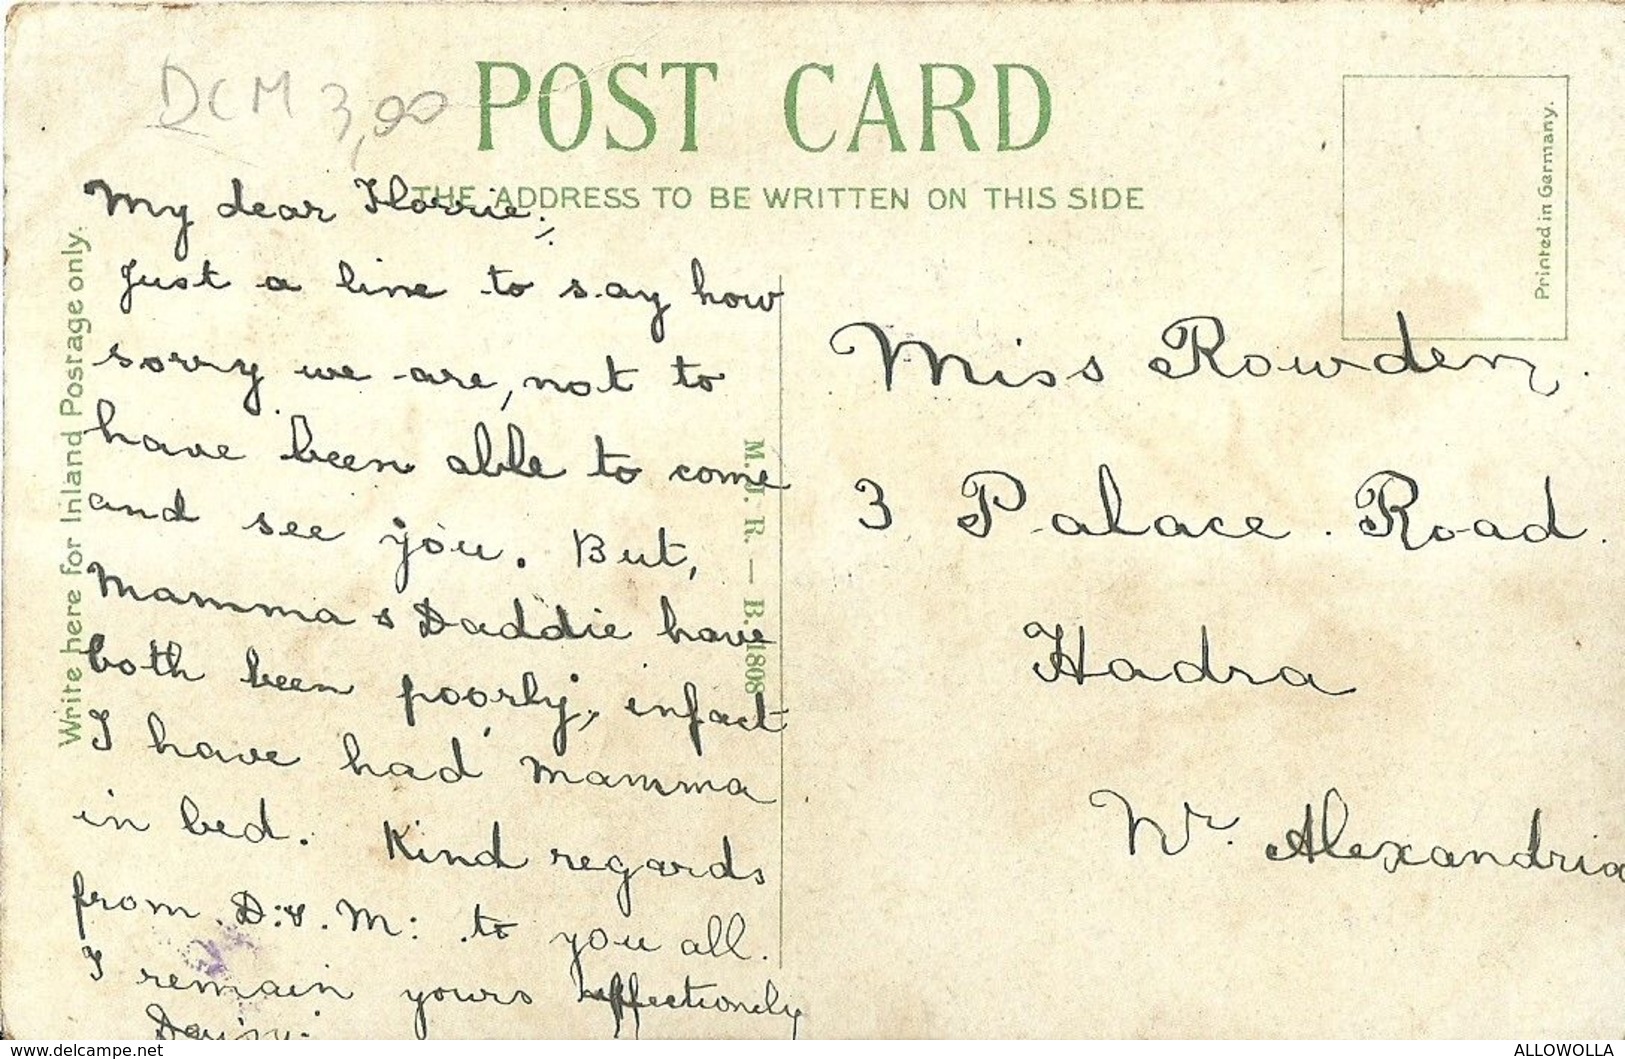 DCM 3,00
POST CARD
THE ADDRESS TO BE WRITTEN ON THIS SIDE
Printed in Germany.
Write here for Inland Postage only.
M. J. R. — B. 1808
My dear Florrie,
Just a line to say how
sorry we are, not to
have been able to come
and see you. But,
Mamma & Daddie have
both been poorly, infact
I have had mamma
in bed. Kind regards
from D: & M: to you all.
I remain yours affectionely
Daisy.
Miss Rowden,
3 Palace Road.
Hadra
Nr. Alexandria
www.delcampe.net
ALLOWOLLA